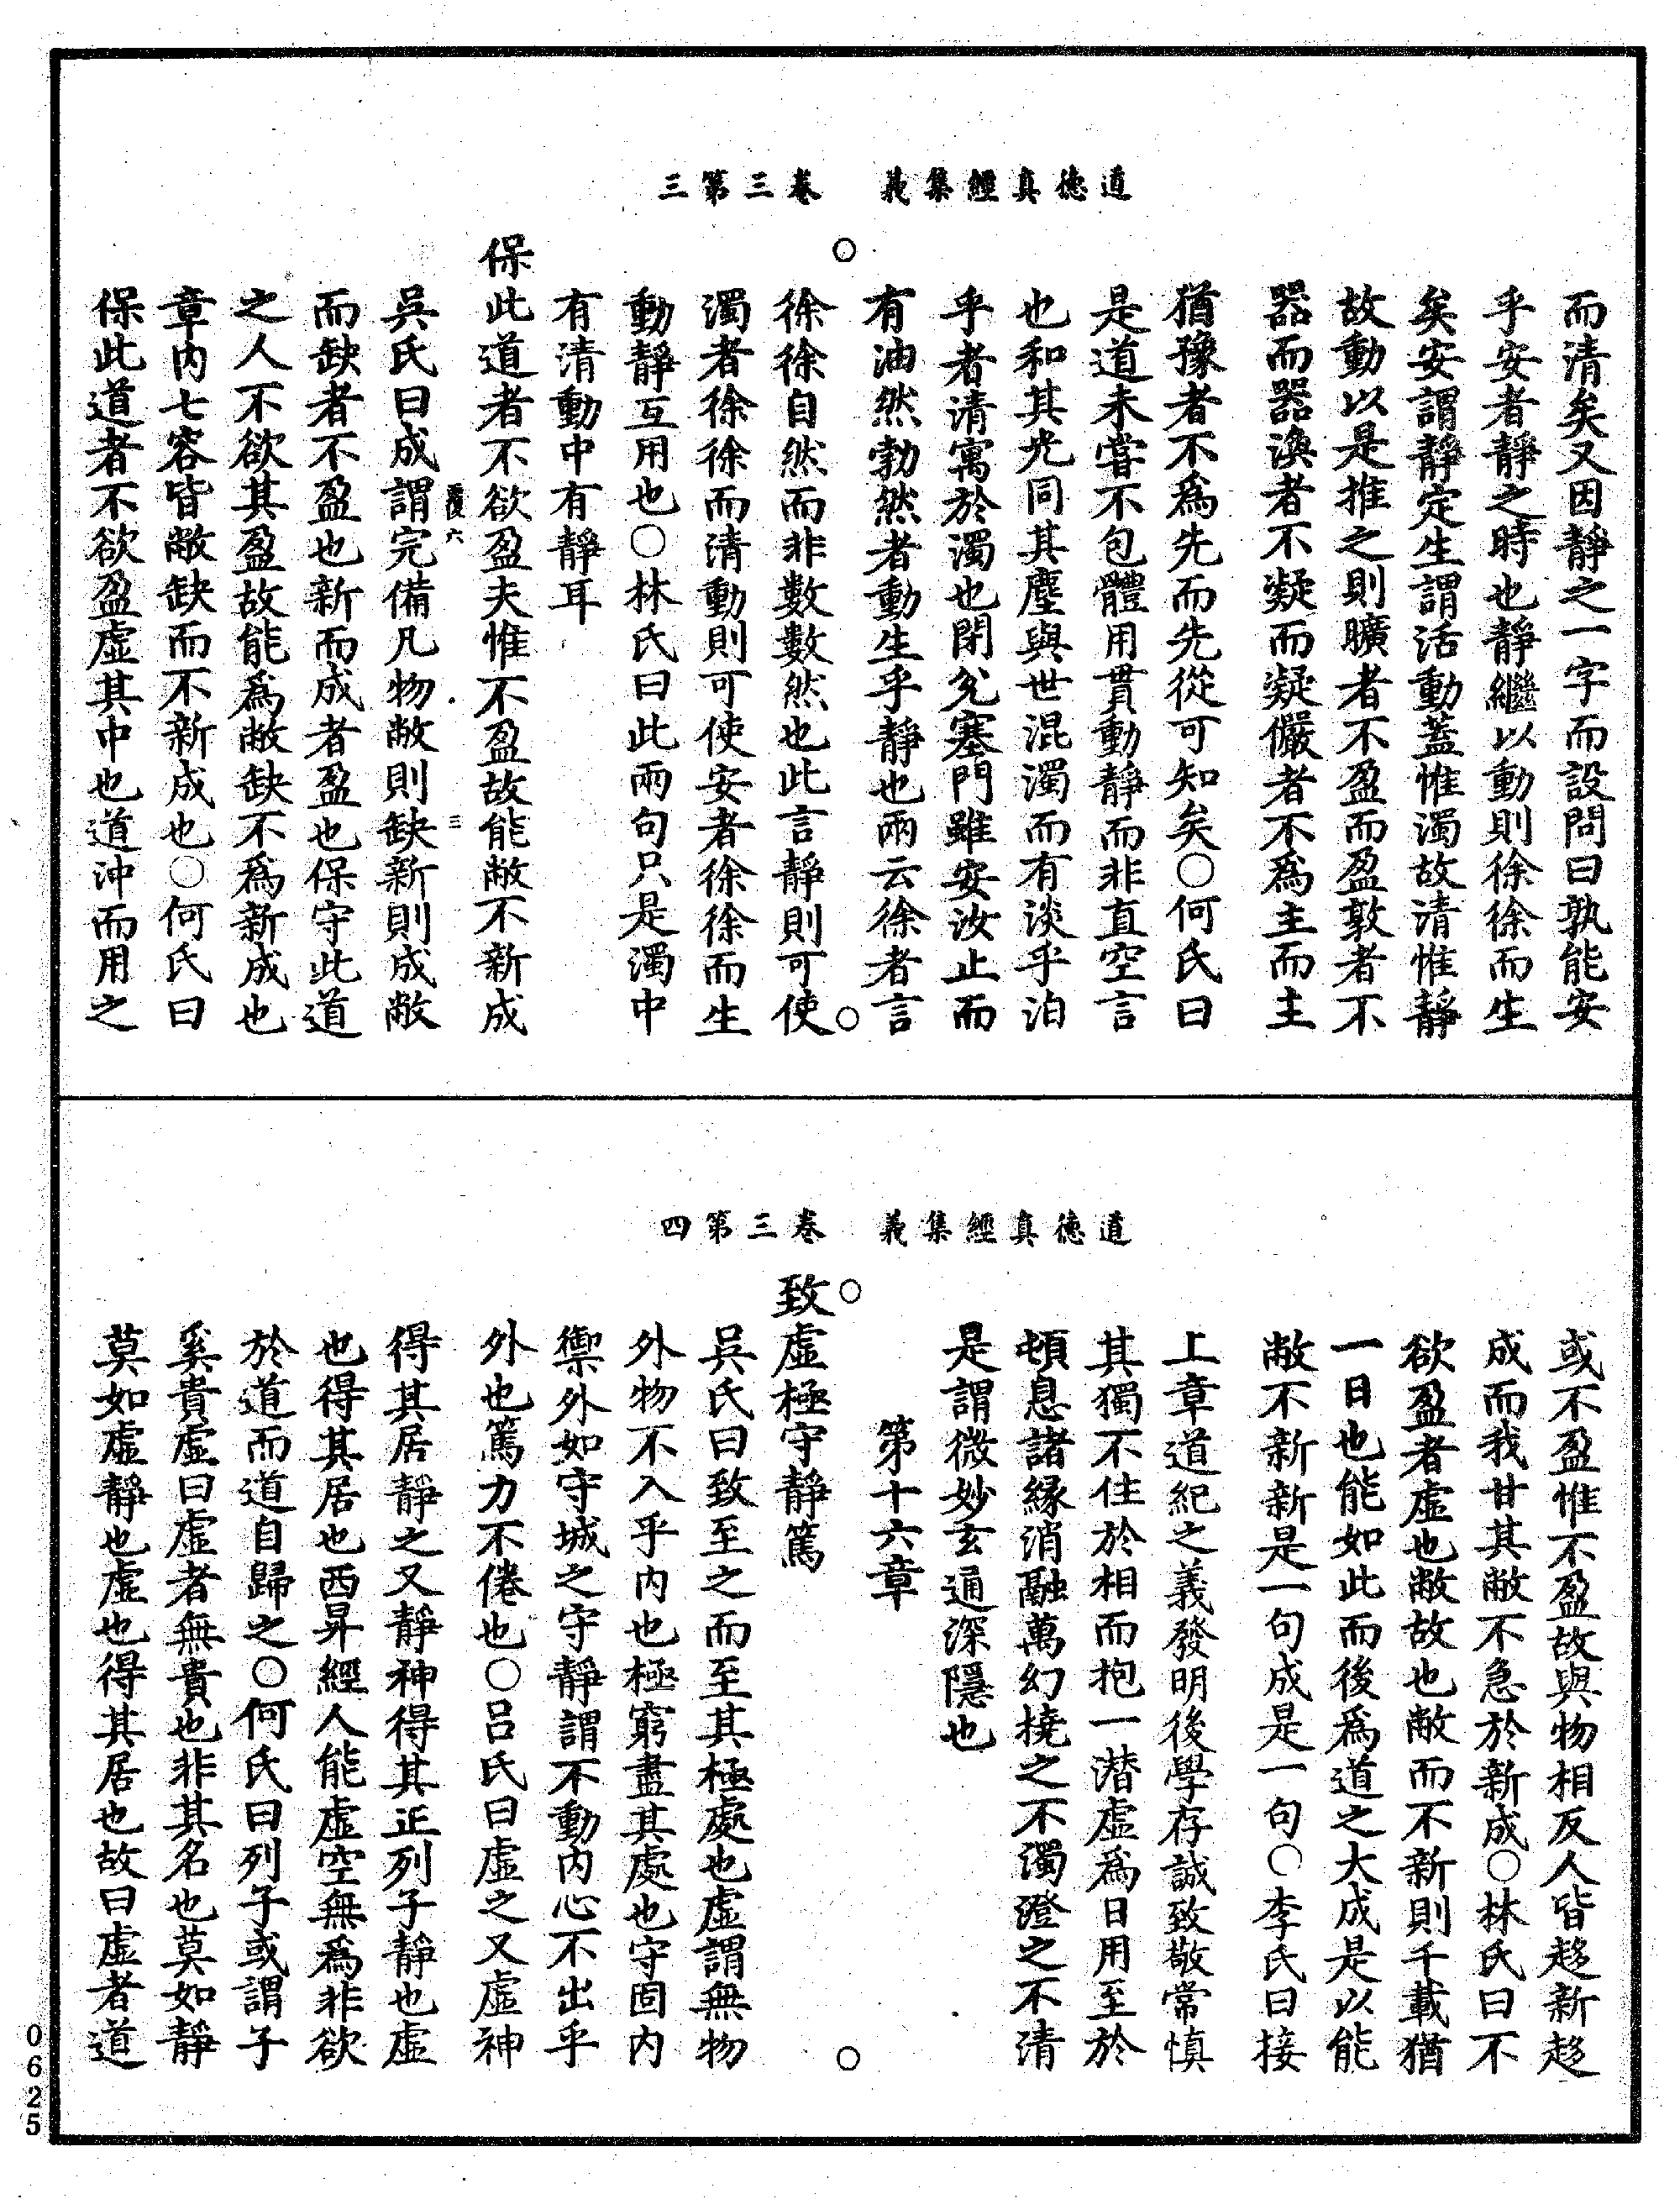 道德真經集義　卷三第三
而清矣又因靜之一字而設問曰孰能安
乎安者靜之時也靜繼以動則徐徐而生
矣安謂靜定生謂活動蓋惟濁故清惟靜
故動以是推之則曠者不盈而盈敦者不
器而器渙者不凝而凝儼者不爲主而主
猶豫者不爲先而先從可知矣○何氏曰
是道未嘗不包體用貫動靜而非直空言
也和其光同其塵與世混濁而有淡乎泊
乎者清寓於濁也閉兌塞門雖安汝止而
有油然勃然者動生乎靜也兩云徐者言
徐徐自然而非數數然也此言靜則可使
濁者徐徐而清動則可使安者徐徐而生
動靜互用也○林氏曰此兩句只是濁中
有清動中有靜耳
保此道者不欲盈夫惟不盈故能敝不新成
六　三
吳氏曰成謂完備凡物敝則缺新則成敝
而缺者不盈也新而成者盈也保守此道
之人不欲其盈故能爲敝缺不爲新成也
章內七容皆敝缺而不新成也○何氏曰
保此道者不欲盈虛其中也道沖而用之
道德真經集義　卷三第四
或不盈惟不盈故與物相反人皆趍新趍
成而我甘其敝不急於新成○林氏曰不
欲盈者虛也敝故也敝而不新則千載猶
一日也能如此而後爲道之大成是以能
敝不新新是一句成是一句○李氏曰接
上章道紀之義發明後學存誠致敬常慎
其獨不住於相而抱一潛虛爲日用至於
頓息諸緣消融萬幻撓之不濁澄之不清
是謂微妙玄通深隱也
第十六章
致虛極守靜篤
吳氏曰致至之而至其極處也虛謂無物
外物不入乎內也極窮盡其處也守固內
禦外如守城之守靜謂不動內心不出乎
外也篤力不倦也○呂氏曰虛之又虛神
得其居靜之又靜神得其正列子靜也虛
也得其居也西昇經人能虛空無爲非欲
於道而道自歸之○何氏曰列子或謂子
奚貴虛曰虛者無貴也非其名也莫如靜
莫如虛靜也虛也得其居也故曰虛者道
0625